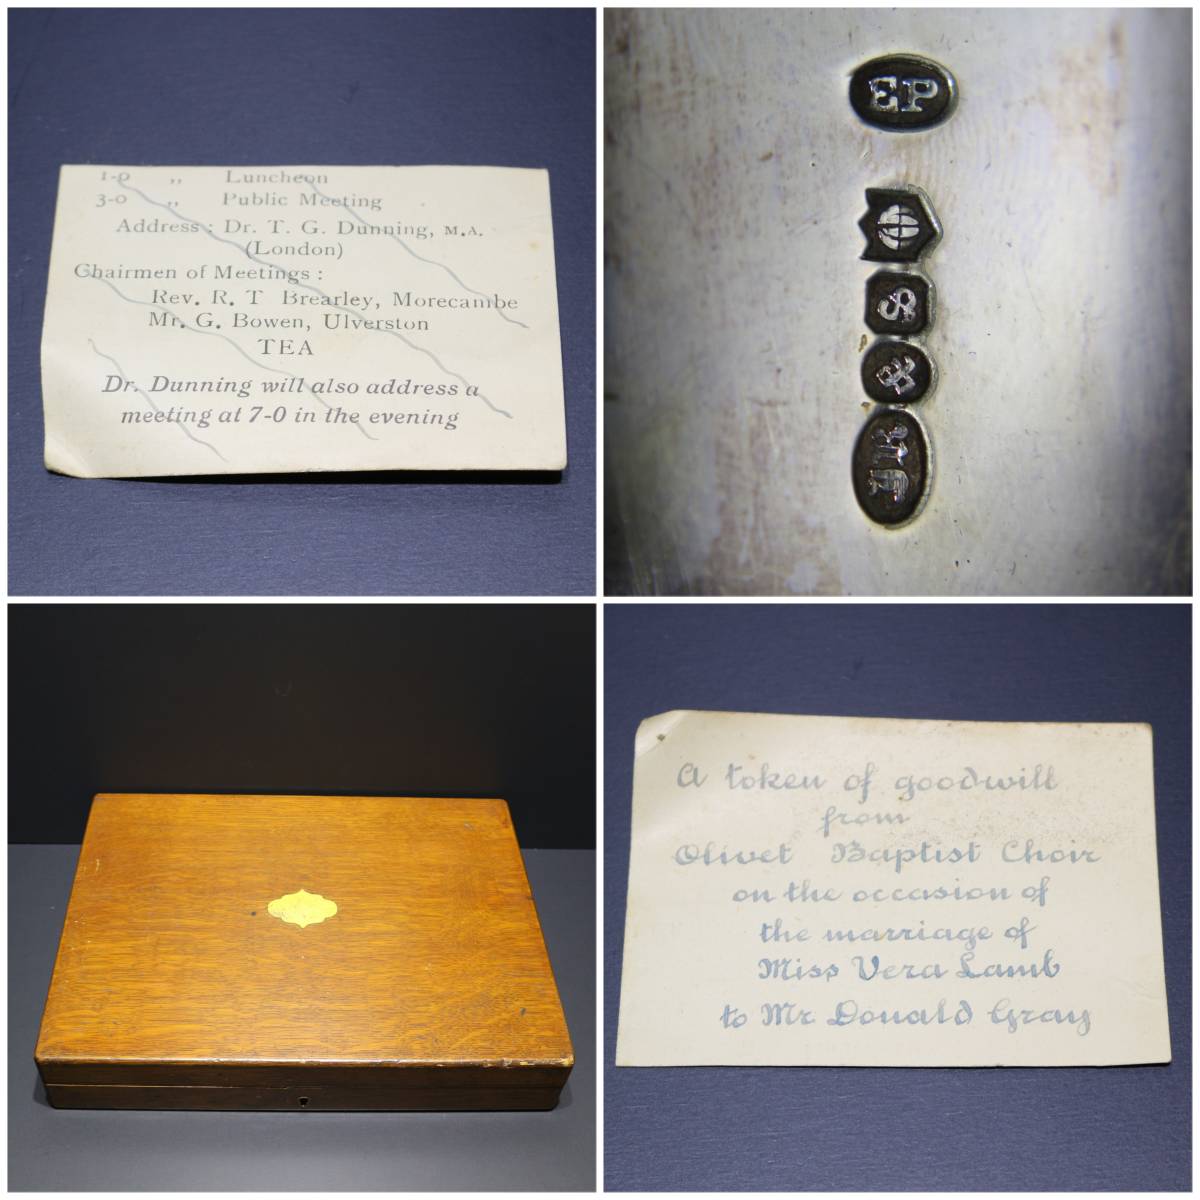 1-0 ,, Luncheon
3-0 ,, Public Meeting
Address : Dr. T. G. Dunning, M.A.
(London)
Chairmen of Meetings :
Rev. R. T Brearley, Morecambe
Mr. G. Bowen, Ulverston
TEA
Dr. Dunning will also address a
meeting at 7-0 in the evening
EP
S
&
A token of goodwill
from
Olivet Baptist Choir
on the occasion of
the marriage of
Miss Vera Lamb
to Mr Donald Gray